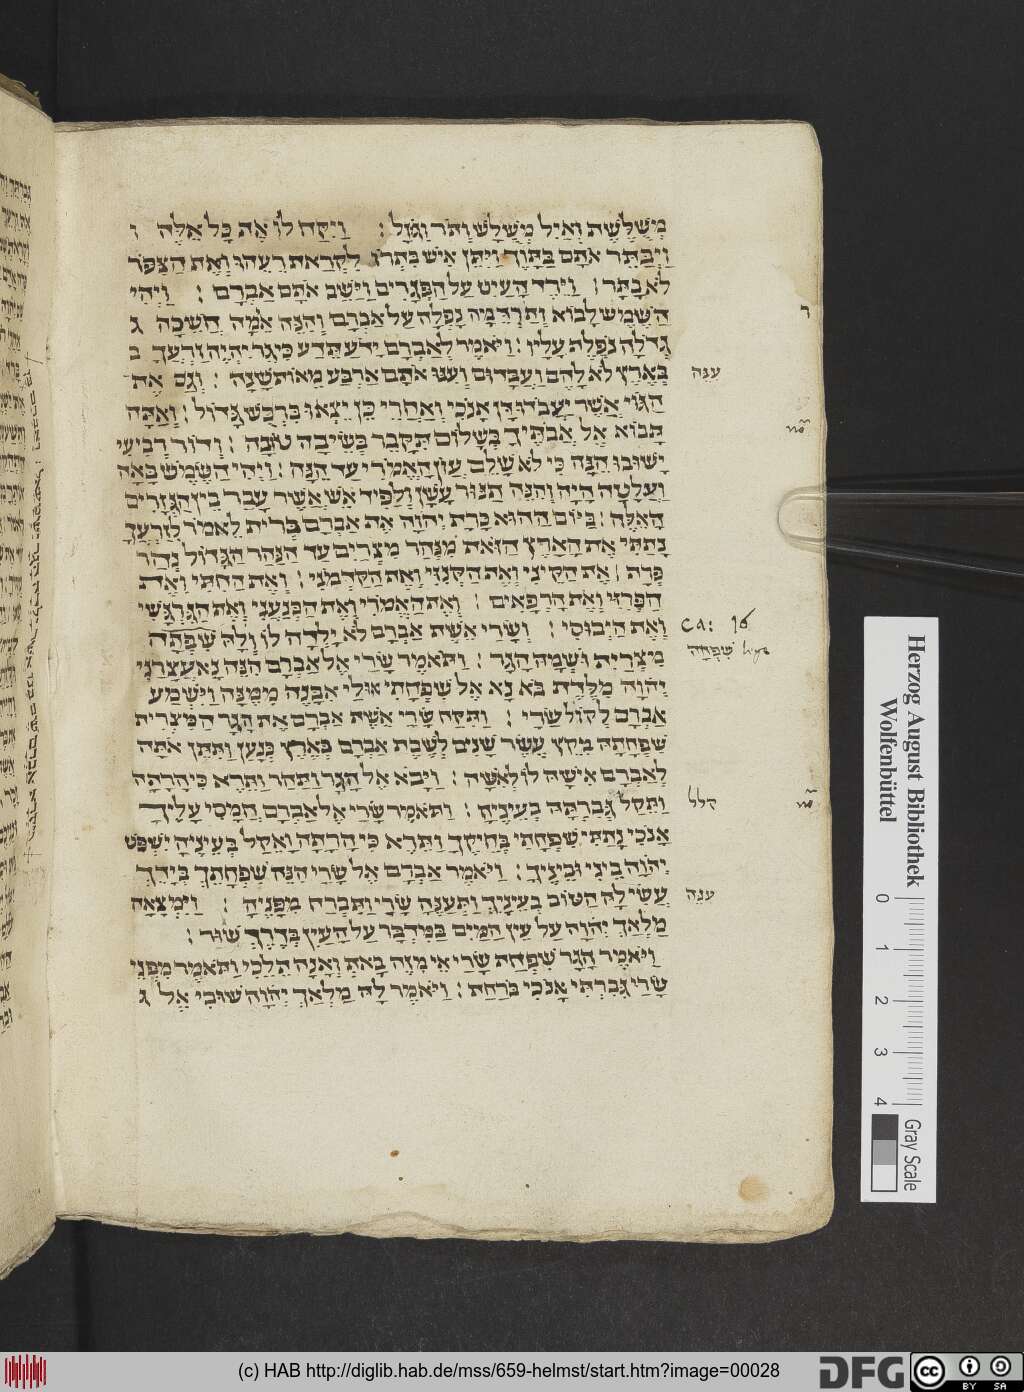 מְשֻׁלֶּשֶׁת וְאַיִל מְשֻׁלָּשׁ וְתֹר וְגוֹזָל : וַיִּקַּח לוֹ אֶת כָּל אֵלֶּה ו
וַיְבַתֵּר אֹתָם בַּתָּוֶךְ וַיִּתֵּן אִישׁ בִּתְרוֹ לִקְרַאת רֵעֵהוּ וְאֶת הַצִּפֹּר
לֹא בָתָר : וַיֵּרֶד הָעַיִט עַל הַפְּגָרִים וַיַּשֵּׁב אֹתָם אַבְרָם : וַיְהִי
הַשֶּׁמֶשׁ לָבוֹא וְתַרְדֵּמָה נָפְלָה עַל אַבְרָם וְהִנֵּה אֵמָה חֲשֵׁכָה ג
גְדֹלָה נֹפֶלֶת עָלָיו : וַיֹּאמֶר לְאַבְרָם יָדֹעַ תֵּדַע כִּי גֵר יִהְיֶה זַרְעֲךָ ב
בְּאֶרֶץ לֹא לָהֶם וַעֲבָדוּם וְעִנּוּ אֹתָם אַרְבַּע מֵאוֹת שָׁנָה : וְגַם אֶת
הַגּוֹי אֲשֶׁר יַעֲבֹדוּ דָּן אָנֹכִי וְאַחֲרֵי כֵן יֵצְאוּ בִּרְכֻשׁ גָּדוֹל : וְאַתָּה
תָּבוֹא אֶל אֲבֹתֶיךָ בְּשָׁלוֹם תִּקָּבֵר בְּשֵׂיבָה טוֹבָה : וְדוֹר רְבִיעִי
יָשׁוּבוּ הֵנָּה כִּי לֹא שָׁלֵם עֲוֹן הָאֱמֹרִי עַד הֵנָּה : וַיְהִי הַשֶּׁמֶשׁ בָּאָה
וַעֲלָטָה הָיָה וְהִנֵּה תַנּוּר עָשָׁן וְלַפִּיד אֵשׁ אֲשֶׁר עָבַר בֵּין הַגְּזָרִים
הָאֵלֶּה : בַּיּוֹם הַהוּא כָּרַת יְהוָה אֶת אַבְרָם בְּרִית לֵאמֹר לְזַרְעֲךָ
נָתַתִּי אֶת הָאָרֶץ הַזֹּאת מִנְּהַר מִצְרַיִם עַד הַנָּהָר הַגָּדוֹל נְהַר
פְּרָת : אֶת הַקֵּינִי וְאֶת הַקְּנִזִּי וְאֶת הַקַּדְמֹנִי : וְאֶת הַחִתִּי וְאֶת
הַפְּרִזִּי וְאֶת הָרְפָאִים : וְאֶת הָאֱמֹרִי וְאֶת הַכְּנַעֲנִי וְאֶת הַגִּרְגָּשִׁי
וְאֶת הַיְבוּסִי : וְשָׂרַי אֵשֶׁת אַבְרָם לֹא יָלְדָה לוֹ וְלָהּ שִׁפְחָה
מִצְרִית וּשְׁמָהּ הָגָר : וַתֹּאמֶר שָׂרַי אֶל אַבְרָם הִנֵּה נָא עֲצָרַנִי
יְהוָה מִלֶּדֶת בֹּא נָא אֶל שִׁפְחָתִי אוּלַי אִבָּנֶה מִמֶּנָּה וַיִּשְׁמַע
אַבְרָם לְקוֹל שָׂרָי : וַתִּקַּח שָׂרַי אֵשֶׁת אַבְרָם אֶת הָגָר הַמִּצְרִית
שִׁפְחָתָהּ מִקֵּץ עֶשֶׂר שָׁנִים לְשֶׁבֶת אַבְרָם בְּאֶרֶץ כְּנָעַן וַתִּתֵּן אֹתָהּ
לְאַבְרָם אִישָׁהּ לוֹ לְאִשָּׁה : וַיָּבֹא אֶל הָגָר וַתַּהַר וַתֵּרֶא כִּי הָרָתָה
וַתֵּקַל גְּבִרְתָּהּ בְּעֵינֶיהָ : וַתֹּאמֶר שָׂרַי אֶל אַבְרָם חֲמָסִי עָלֶיךָ
אָנֹכִי נָתַתִּי שִׁפְחָתִי בְּחֵיקֶךָ וַתֵּרֶא כִּי הָרָתָה וָאֵקַל בְּעֵינֶיהָ יִשְׁפֹּט
יְהוָה בֵּינִי וּבֵינֶיךָ : וַיֹּאמֶר אַבְרָם אֶל שָׂרַי הִנֵּה שִׁפְחָתֵךְ בְּיָדֵךְ
עֲשִׂי לָהּ הַטּוֹב בְּעֵינָיִךְ וַתְּעַנֶּהָ שָׂרַי וַתִּבְרַח מִפָּנֶיהָ : וַיִּמְצָאָהּ
מַלְאַךְ יְהוָה עַל עֵין הַמַּיִם בַּמִּדְבָּר עַל הָעַיִן בְּדֶרֶךְ שׁוּר :
וַיֹּאמֶר הָגָר שִׁפְחַת שָׂרַי אֵי מִזֶּה בָאת וְאָנָה תֵלֵכִי וַתֹּאמֶר מִפְּנֵי
שָׂרַי גְּבִרְתִּי אָנֹכִי בֹּרַחַת : וַיֹּאמֶר לָהּ מַלְאַךְ יְהוָה שׁוּבִי אֶל ג
ענה
ca: 16
שִׁפְחָה
קלל
ענה
Herzog August Bibliothek
Wolfenbüttel
0 1 2 3 4
Gray Scale
(c) HAB http://diglib.hab.de/mss/659-helmst/start.htm?image=00028
DFG
cc BY SA